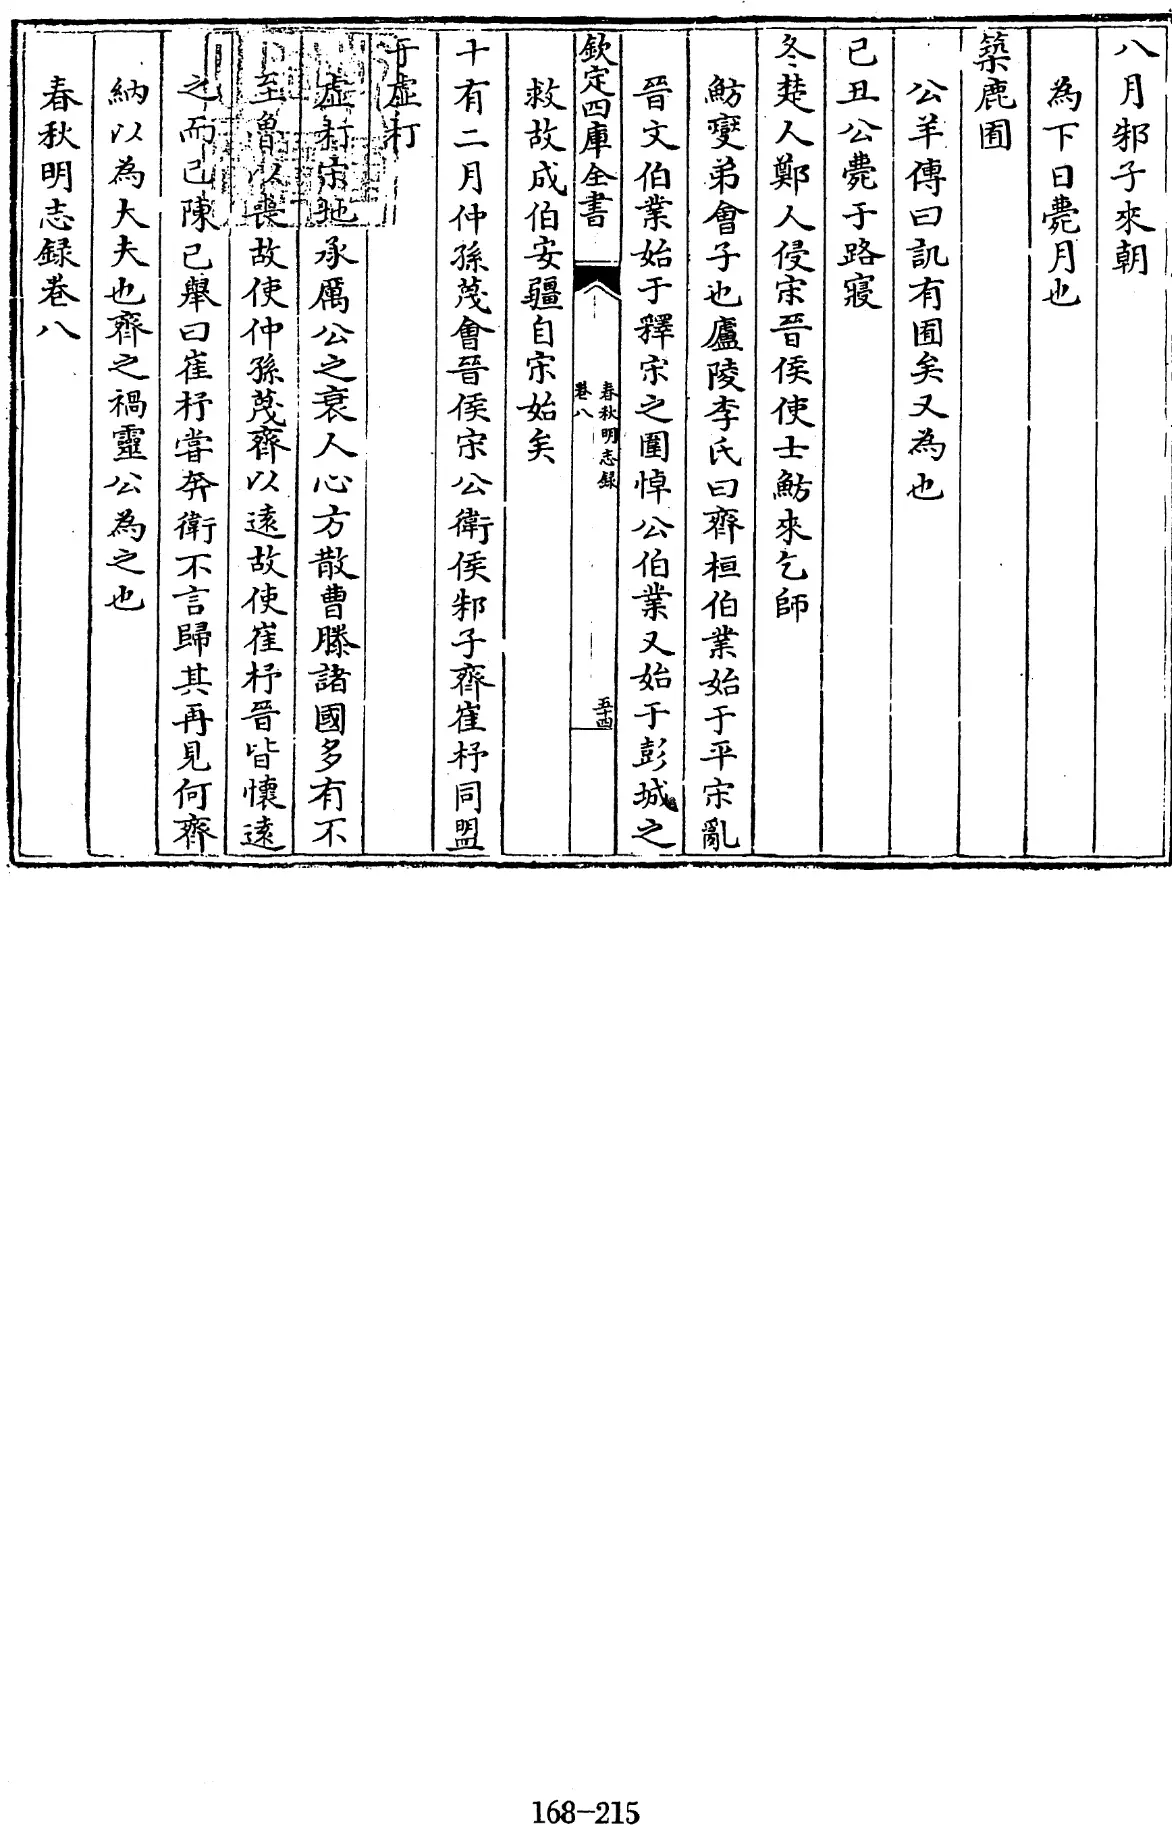 八月邾子來朝
為下日薨月也
築鹿囿
公羊傳曰訊有囿矣又為也
己丑公薨于路寢
冬楚人鄭人侵宋晉侯使士魴來乞師
魴變弟會子也廬陵李氏曰齊桓伯業始于平宋亂
晉文伯業始于釋宋之圍悼公伯業又始于彭城之
欽定四庫全書
春秋明志録
卷八
五十四
救故成伯安疆自宋始矣
十有二月仲孫蔑會晉侯宋公衛侯邾子齊崔杼同盟
于虛朾
虛朾宋地承厲公之衰人心方散曹滕諸國多有不
至魯以喪故使仲孫蔑齊以遠故使崔杼晉皆懷遠
之而已陳已舉曰崔杼嘗奔衛不言歸其再見何齊
納以為大夫也齊之禍靈公為之也
春秋明志録卷八
168-215